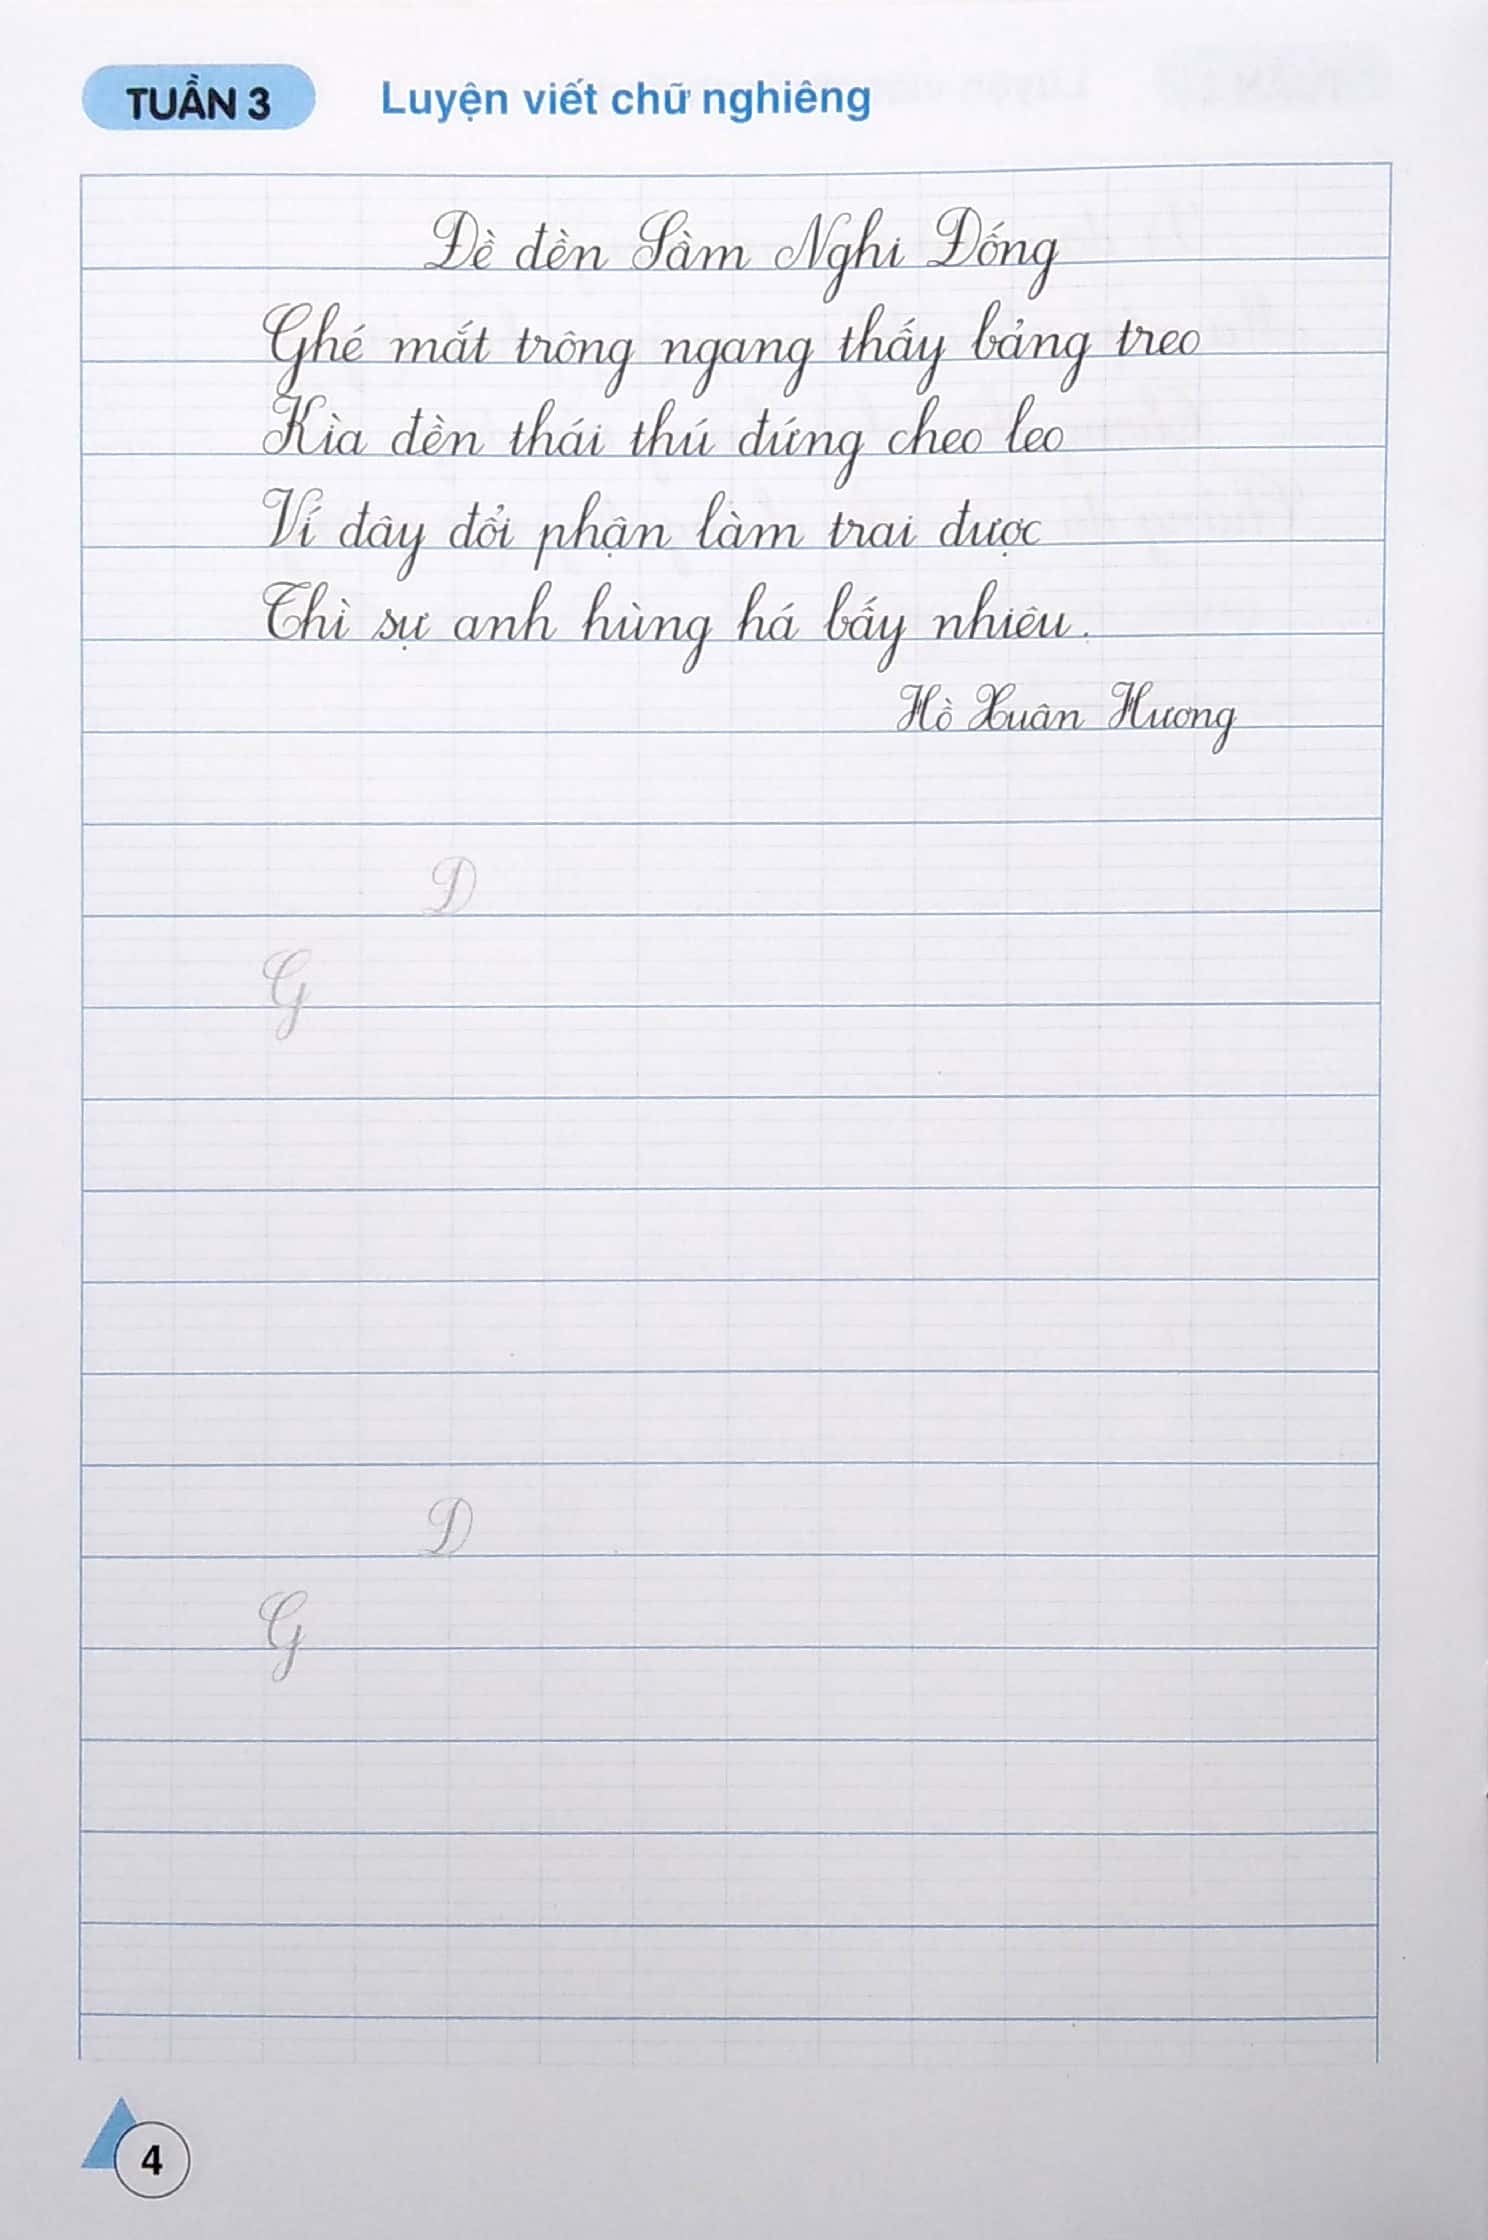 TUẦN 3 Luyện viết chữ nghiêng
Đề đền Sầm Nghi Đống
Ghé mắt trông ngang thấy bảng treo
Kìa đền thái thú đứng cheo leo
Ví đây đổi phận làm trai được
Thì sự anh hùng há bấy nhiêu.
Hồ Xuân Hương
Đ
G
Đ
G
4